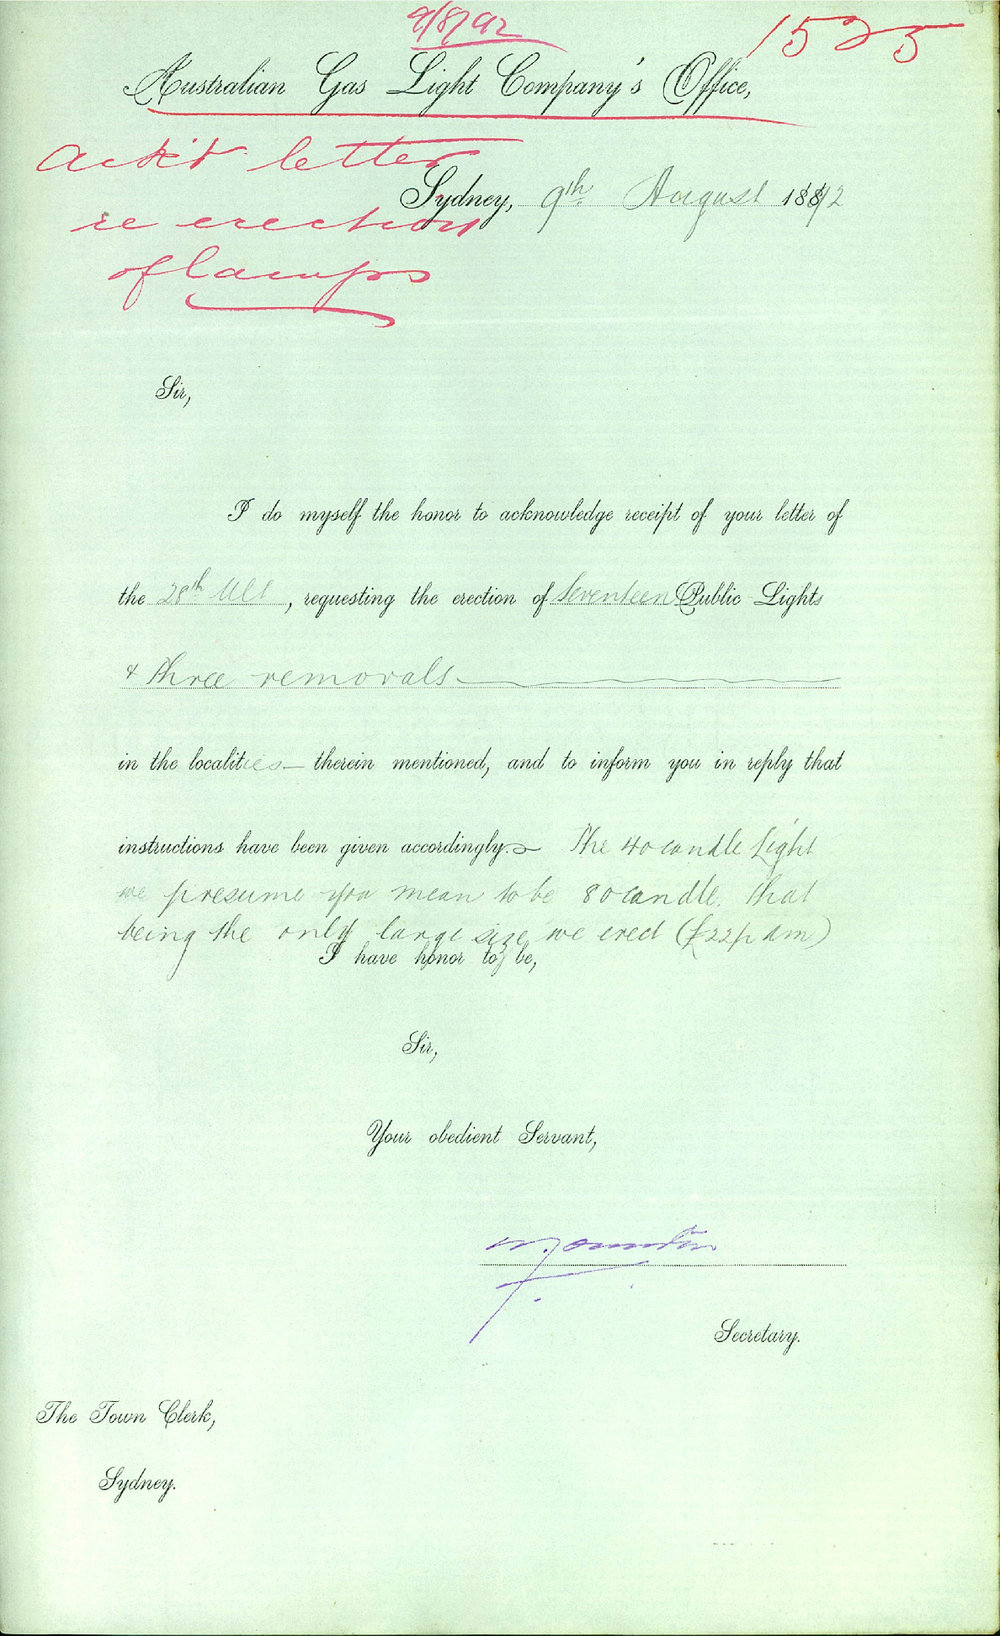 9/8/92
1525
Australian Gas Light Company's Office,
Ack't letter
Sydney, 9th August 1892
re erection
of lamps
Sir,
I do myself the honor to acknowledge receipt of your letter of
the 28th Ult, requesting the erection of Seventeen Public Lights
& three removals
in the localities therein mentioned, and to inform you in reply that
instructions have been given accordingly. The 40 candle Light
we presume you mean to be 80 candle. that
being the only large size we erect (£22 p Am)
I have honor to be,
Sir,
Your obedient Servant,
Secretary.
The Town Clerk,
Sydney.